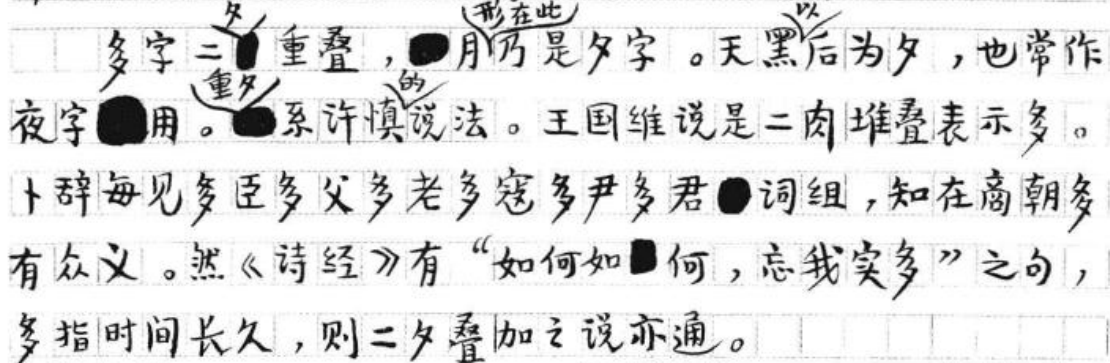 多字二夕重叠,月形在此乃是夕字。天黑以后为夕,也常作
夜字用。重夕系许慎的说法。王国维说是二肉堆叠表示多。
卜辞每见多臣多父多老多寇多尹多君词组,知在商朝多
有众义。然《诗经》有“如何如何,忘我实多”之句,
多指时间长久,则二夕叠加之说亦通。